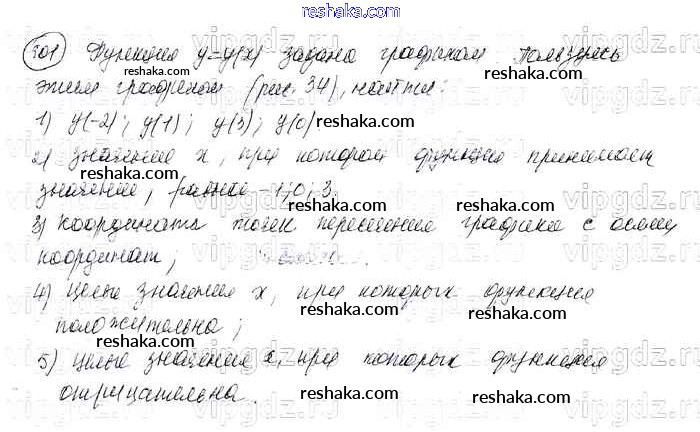 reshaka.com
501 Функция y=y(x) задана графиком. Пользуясь
этим графиком (рис. 34), найти:
reshaka.com reshaka.com
1) y(-2); y(1); y(3); y(0)
reshaka.com
2) значение x, при котором функция принимает
reshaka.com reshaka.com
значение, равное -1; 0; 3.
reshaka.com
3) координаты точек пересечения графика с осями
reshaka.com reshaka.com
координат;
reshaka.com
4) целые значения x, при которых функция
reshaka.com
положительна;
reshaka.com
5) целые значения x, при которых функция
reshaka.com
отрицательна.
reshaka.com reshaka.com
vipgdz.ru